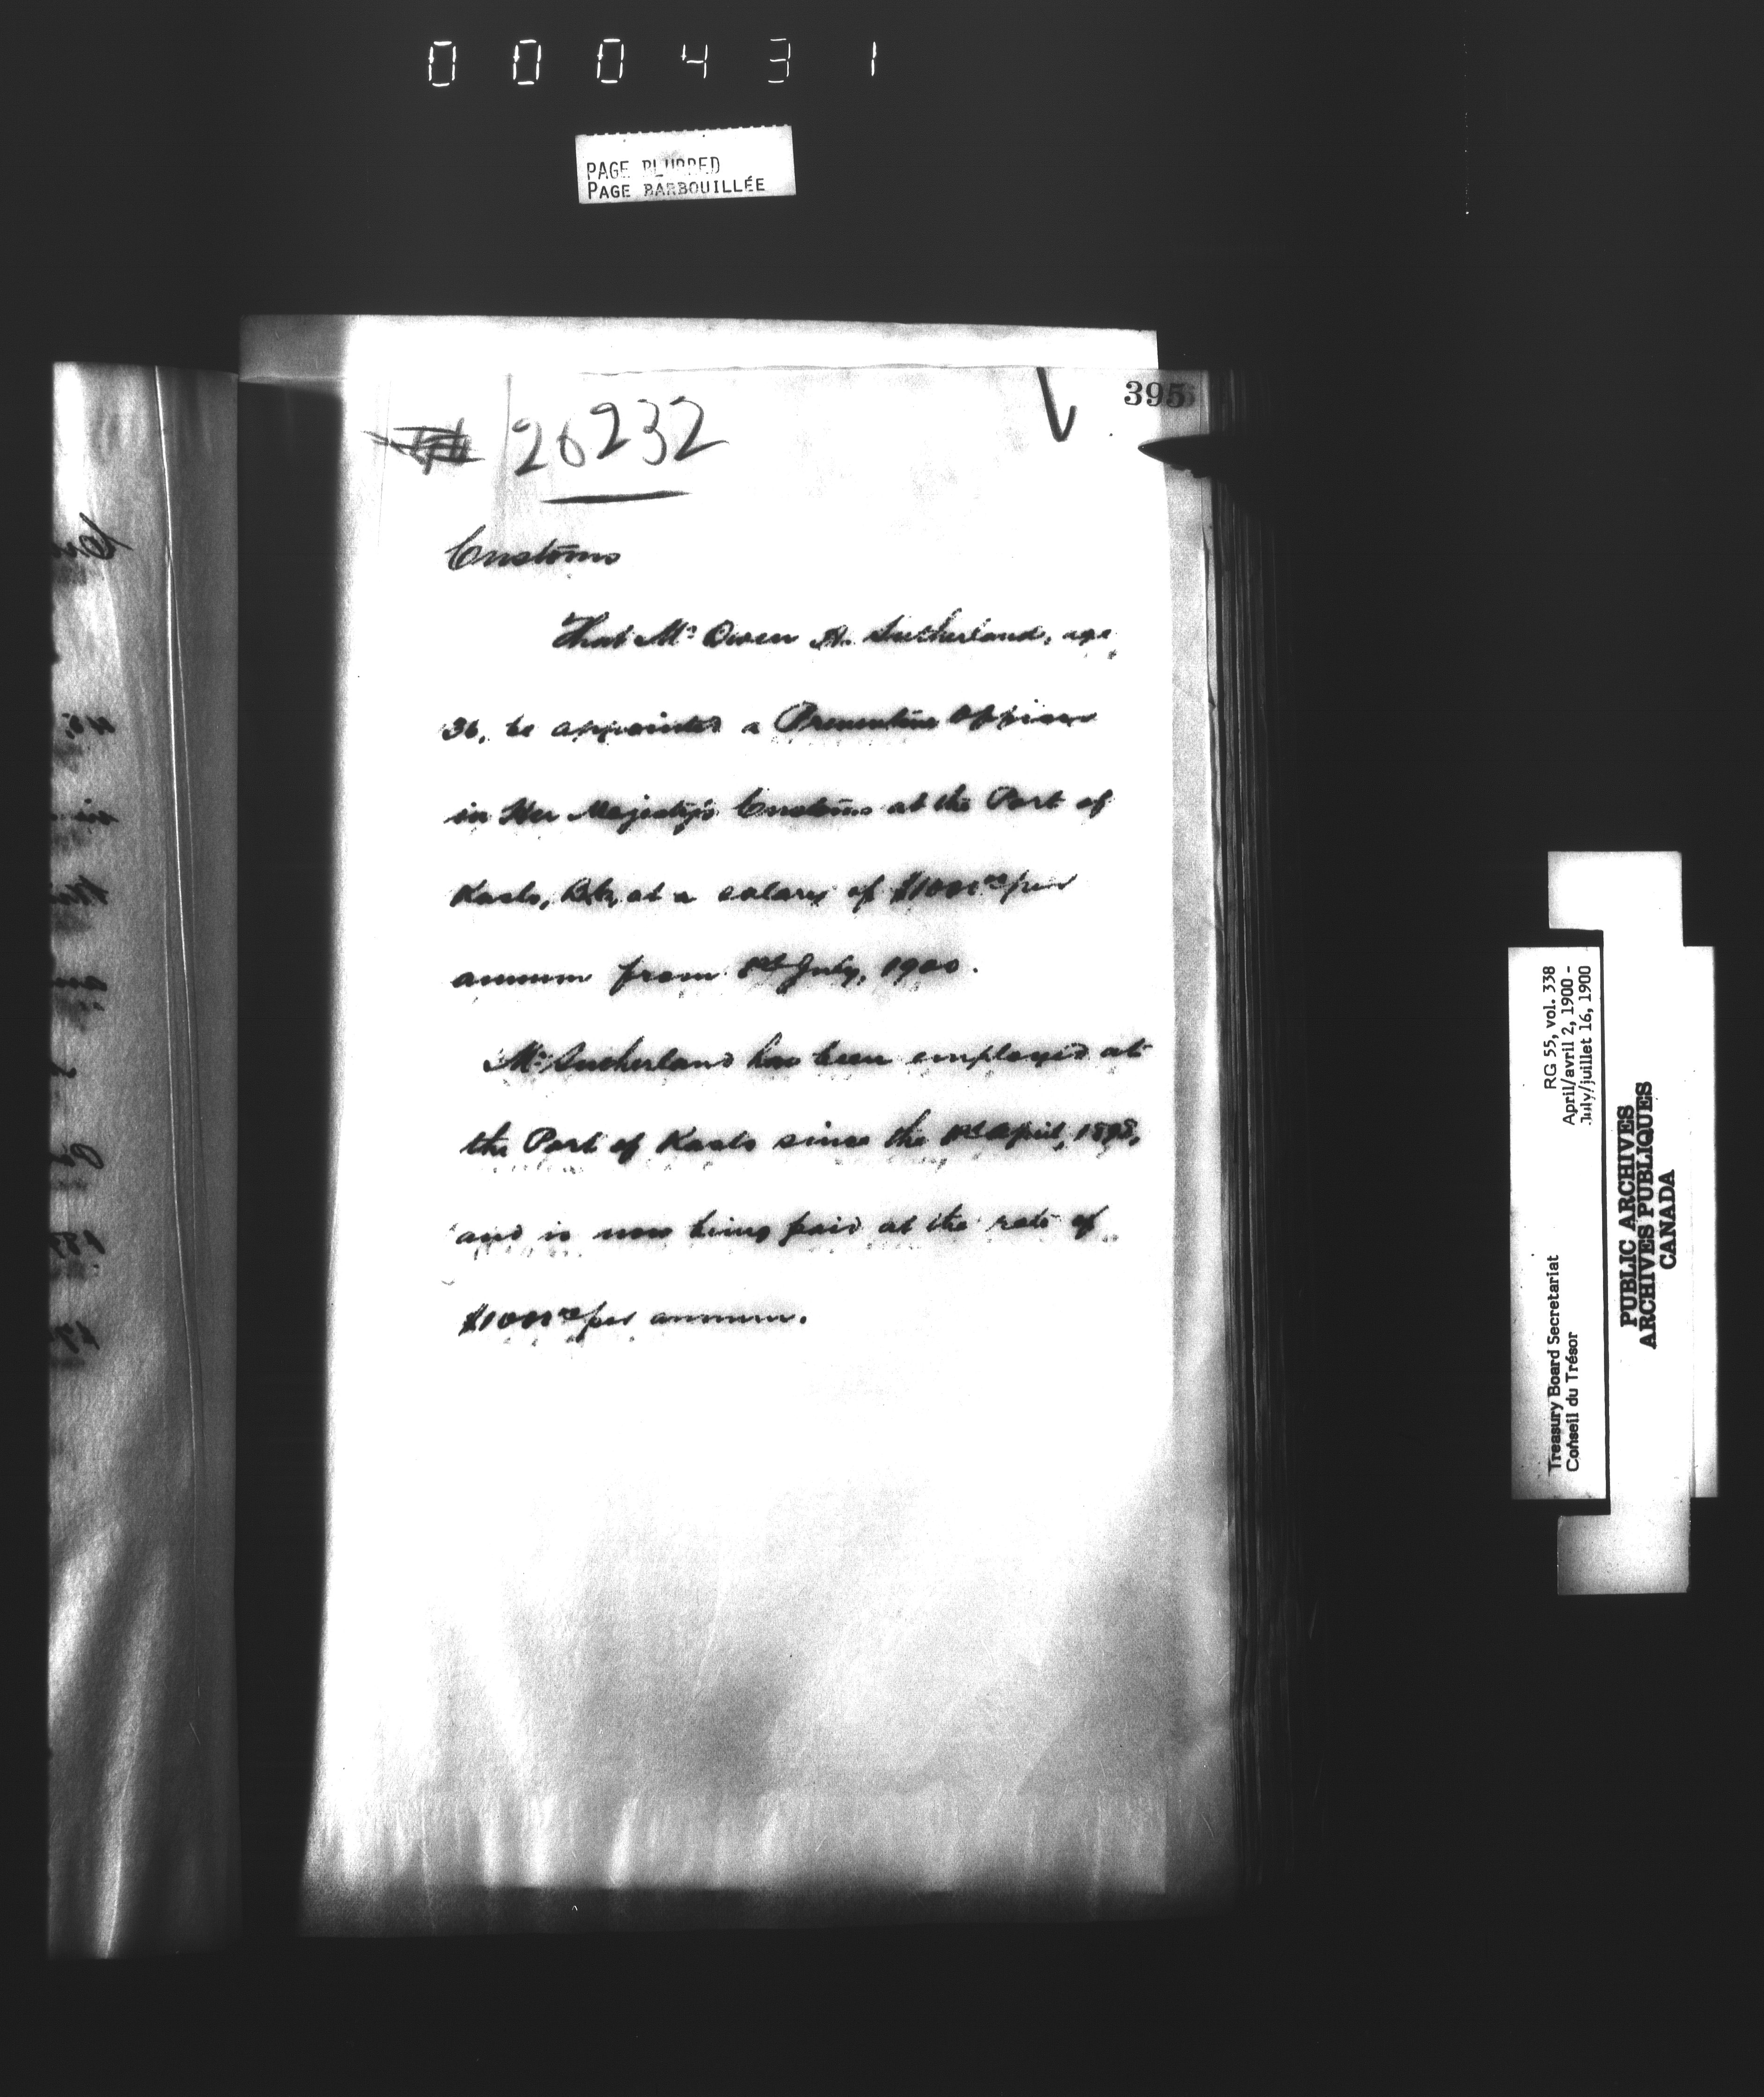 000431
PAGE BLURRED
PAGE BARBOUILLÉE
395
26232
Customs
That Mr Owen A. Sutherland, age
36, be appointed a Preventive Officer
in Her Majesty's Customs at the Port of
Kaslo, B.C, at a salary of $1000 00 per
annum from 1st July, 1900.
Mr Sutherland has been employed at
the Port of Kaslo since the 1st April, 1898,
and is now being paid at the rate of
$1000 00 per annum.
RG 55, vol. 338
April/avril 2, 1900 -
July/juillet 16, 1900
Treasury Board Secretariat
Conseil du Trésor
PUBLIC ARCHIVES
ARCHIVES PUBLIQUES
CANADA